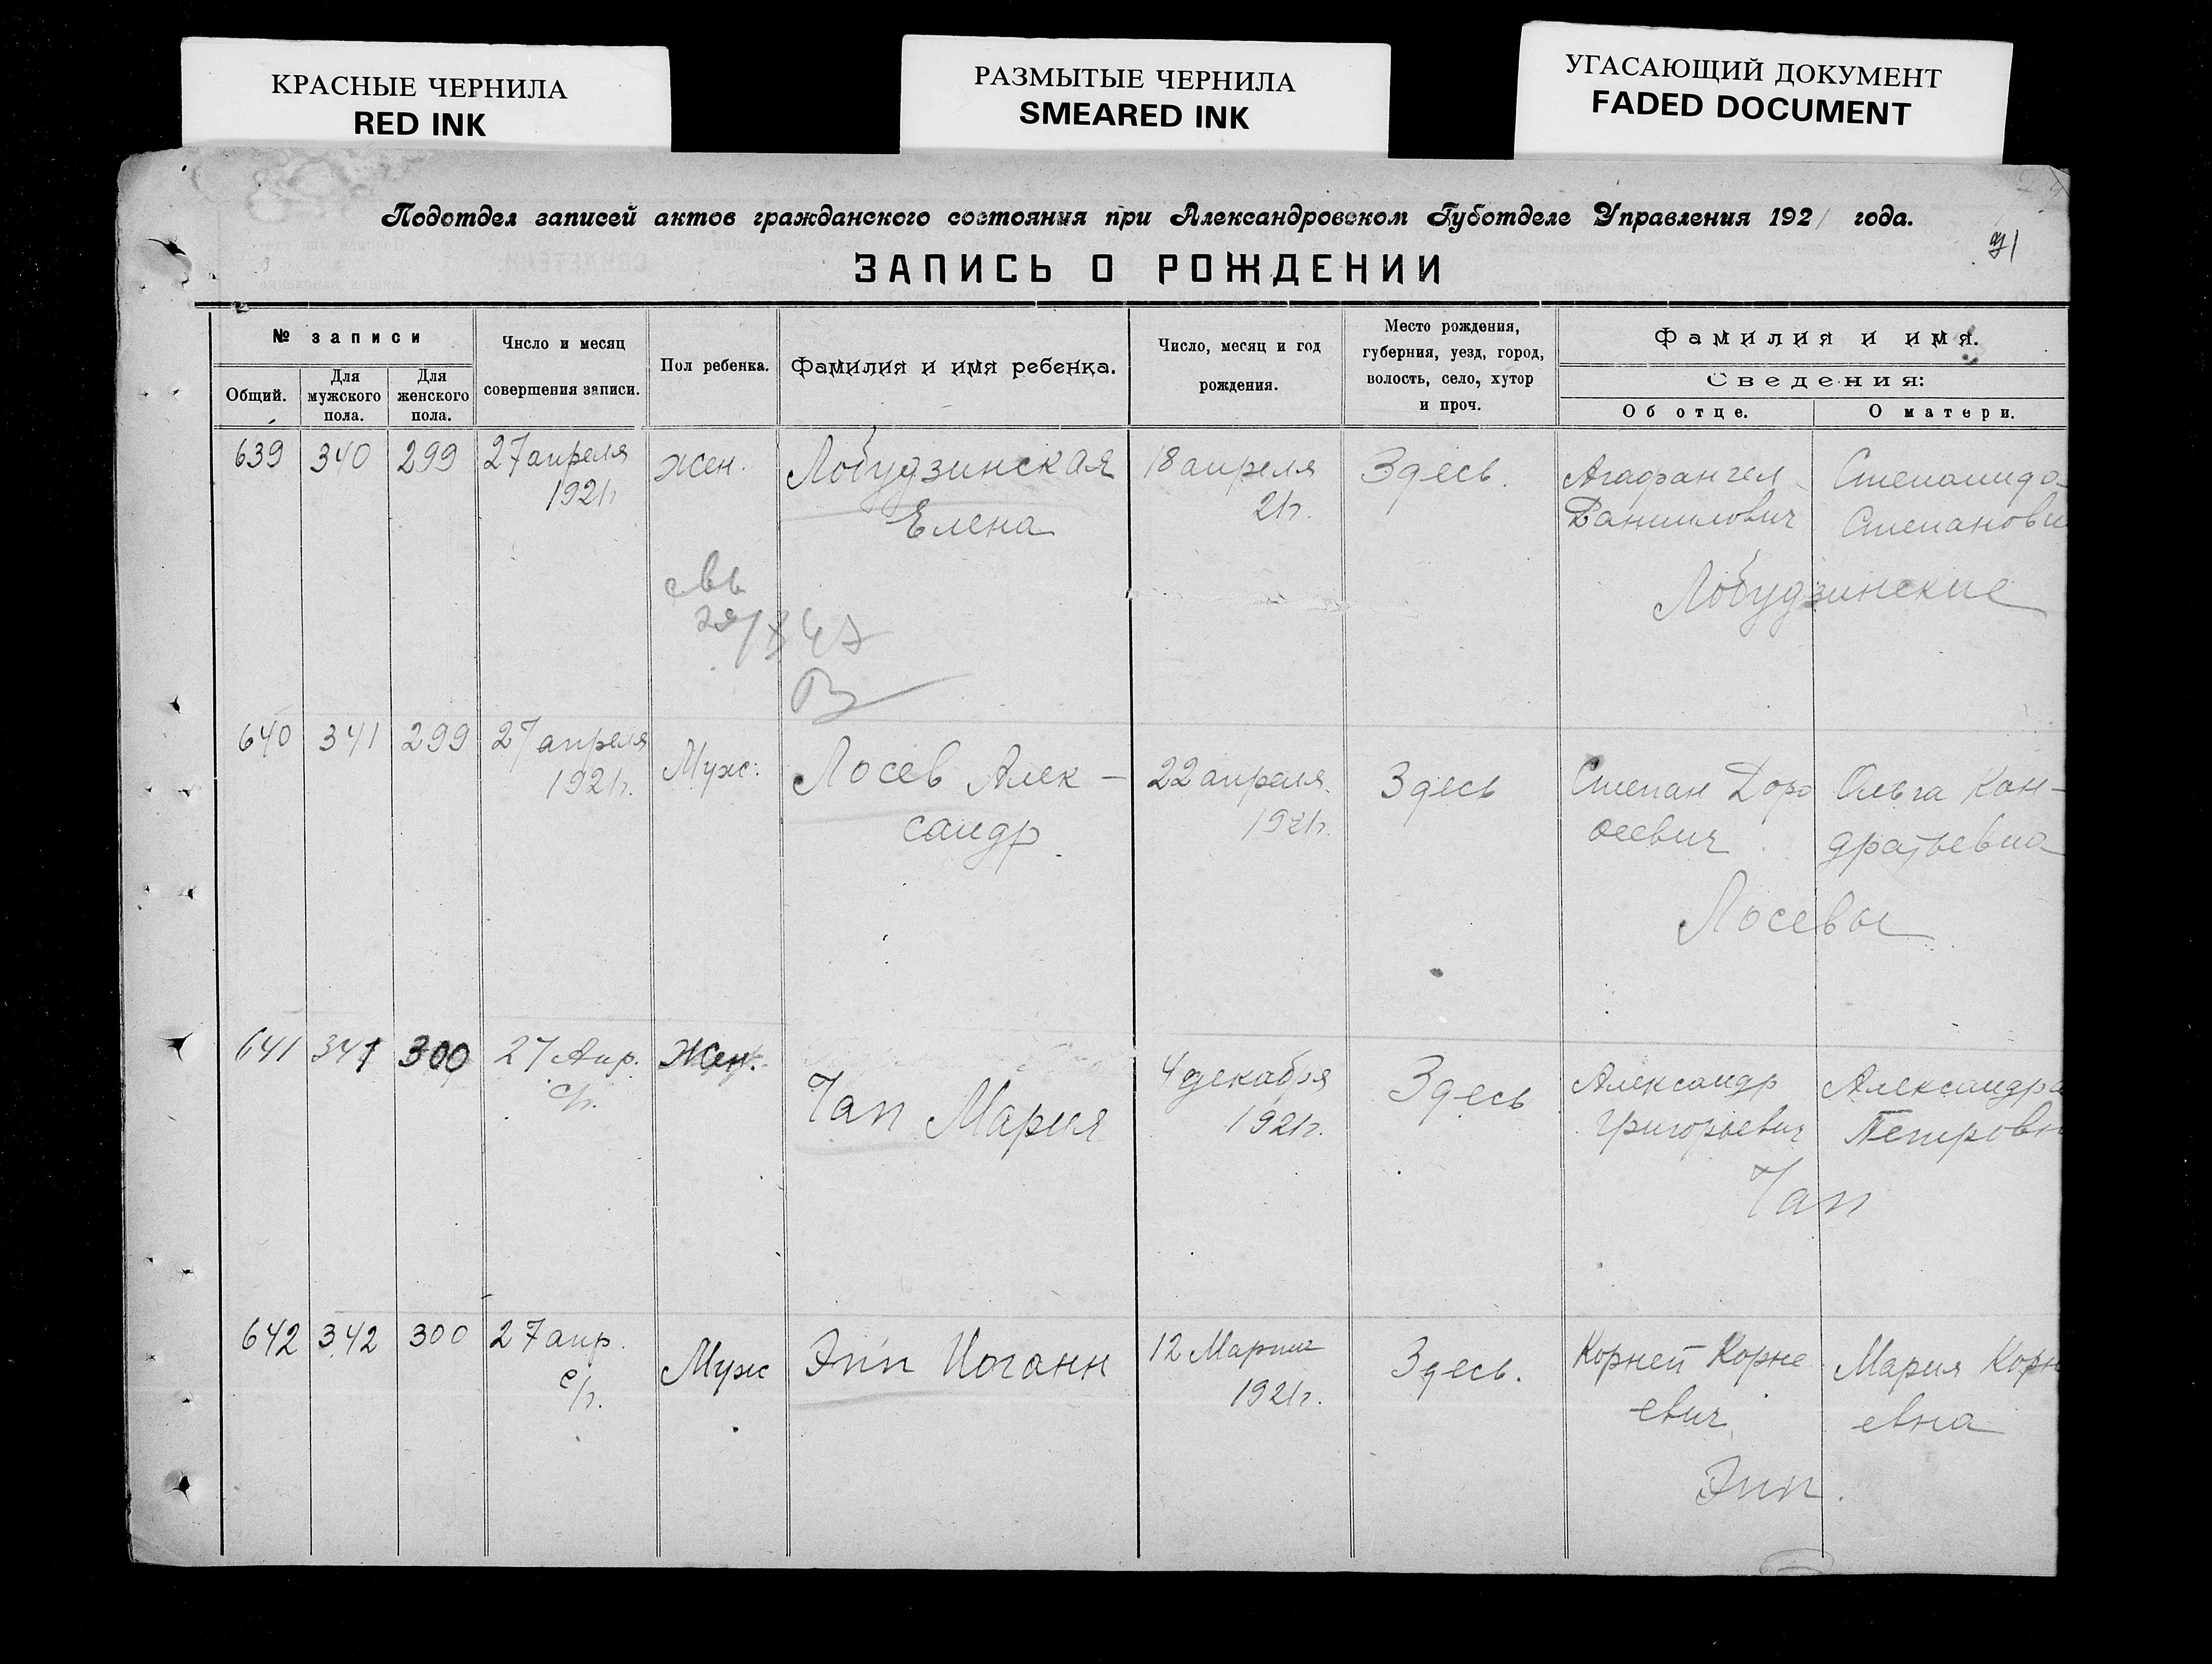 КРАСНЫЕ ЧЕРНИЛА
RED INK
РАЗМЫТЫЕ ЧЕРНИЛА
SMEARED INK
УГАСАЮЩИЙ ДОКУМЕНТ
FADED DOCUMENT
Подотдел записей актов гражданского состояния при Александровском Губотделе Управления 1921 года.
91
ЗАПИСЬ О РОЖДЕНИИ
№ записи
Общий.
Для мужского пола.
Для женского пола.
Число и месяц
совершения записи.
Пол ребенка.
Фамилия и имя ребенка.
Число, месяц и год
рождения.
Место рождения,
губерния, уезд, город,
волость, село, хутор
и проч.
Фамилия и имя.
Сведения:
Об отце.
О матери.
639 340 299 27 апреля жен. Лобудзинская 18 апреля Здесь. Агафангел
1921г Елена 21г. Даниилович Степанов
Лобудзинские
640 341 299 27 апреля Муж: Лосев Алек- 22 апреля Здесь Степан Доро Ольга Кон-
1921г. сандр 1921г. феевич дратьевна
Лосевы
641 341 300 27 Апр. Жен. Тап Мария 4 декабря Здесь Александр Александра
с/г. 1921г. Григорьевич Петровн
Тап
642 342 300 27 апр. Муж Эпп Иоганн 12 Марта Здесь. Корней Корне Мария Корн
с/г. 1921г. евич евна
Эпп.